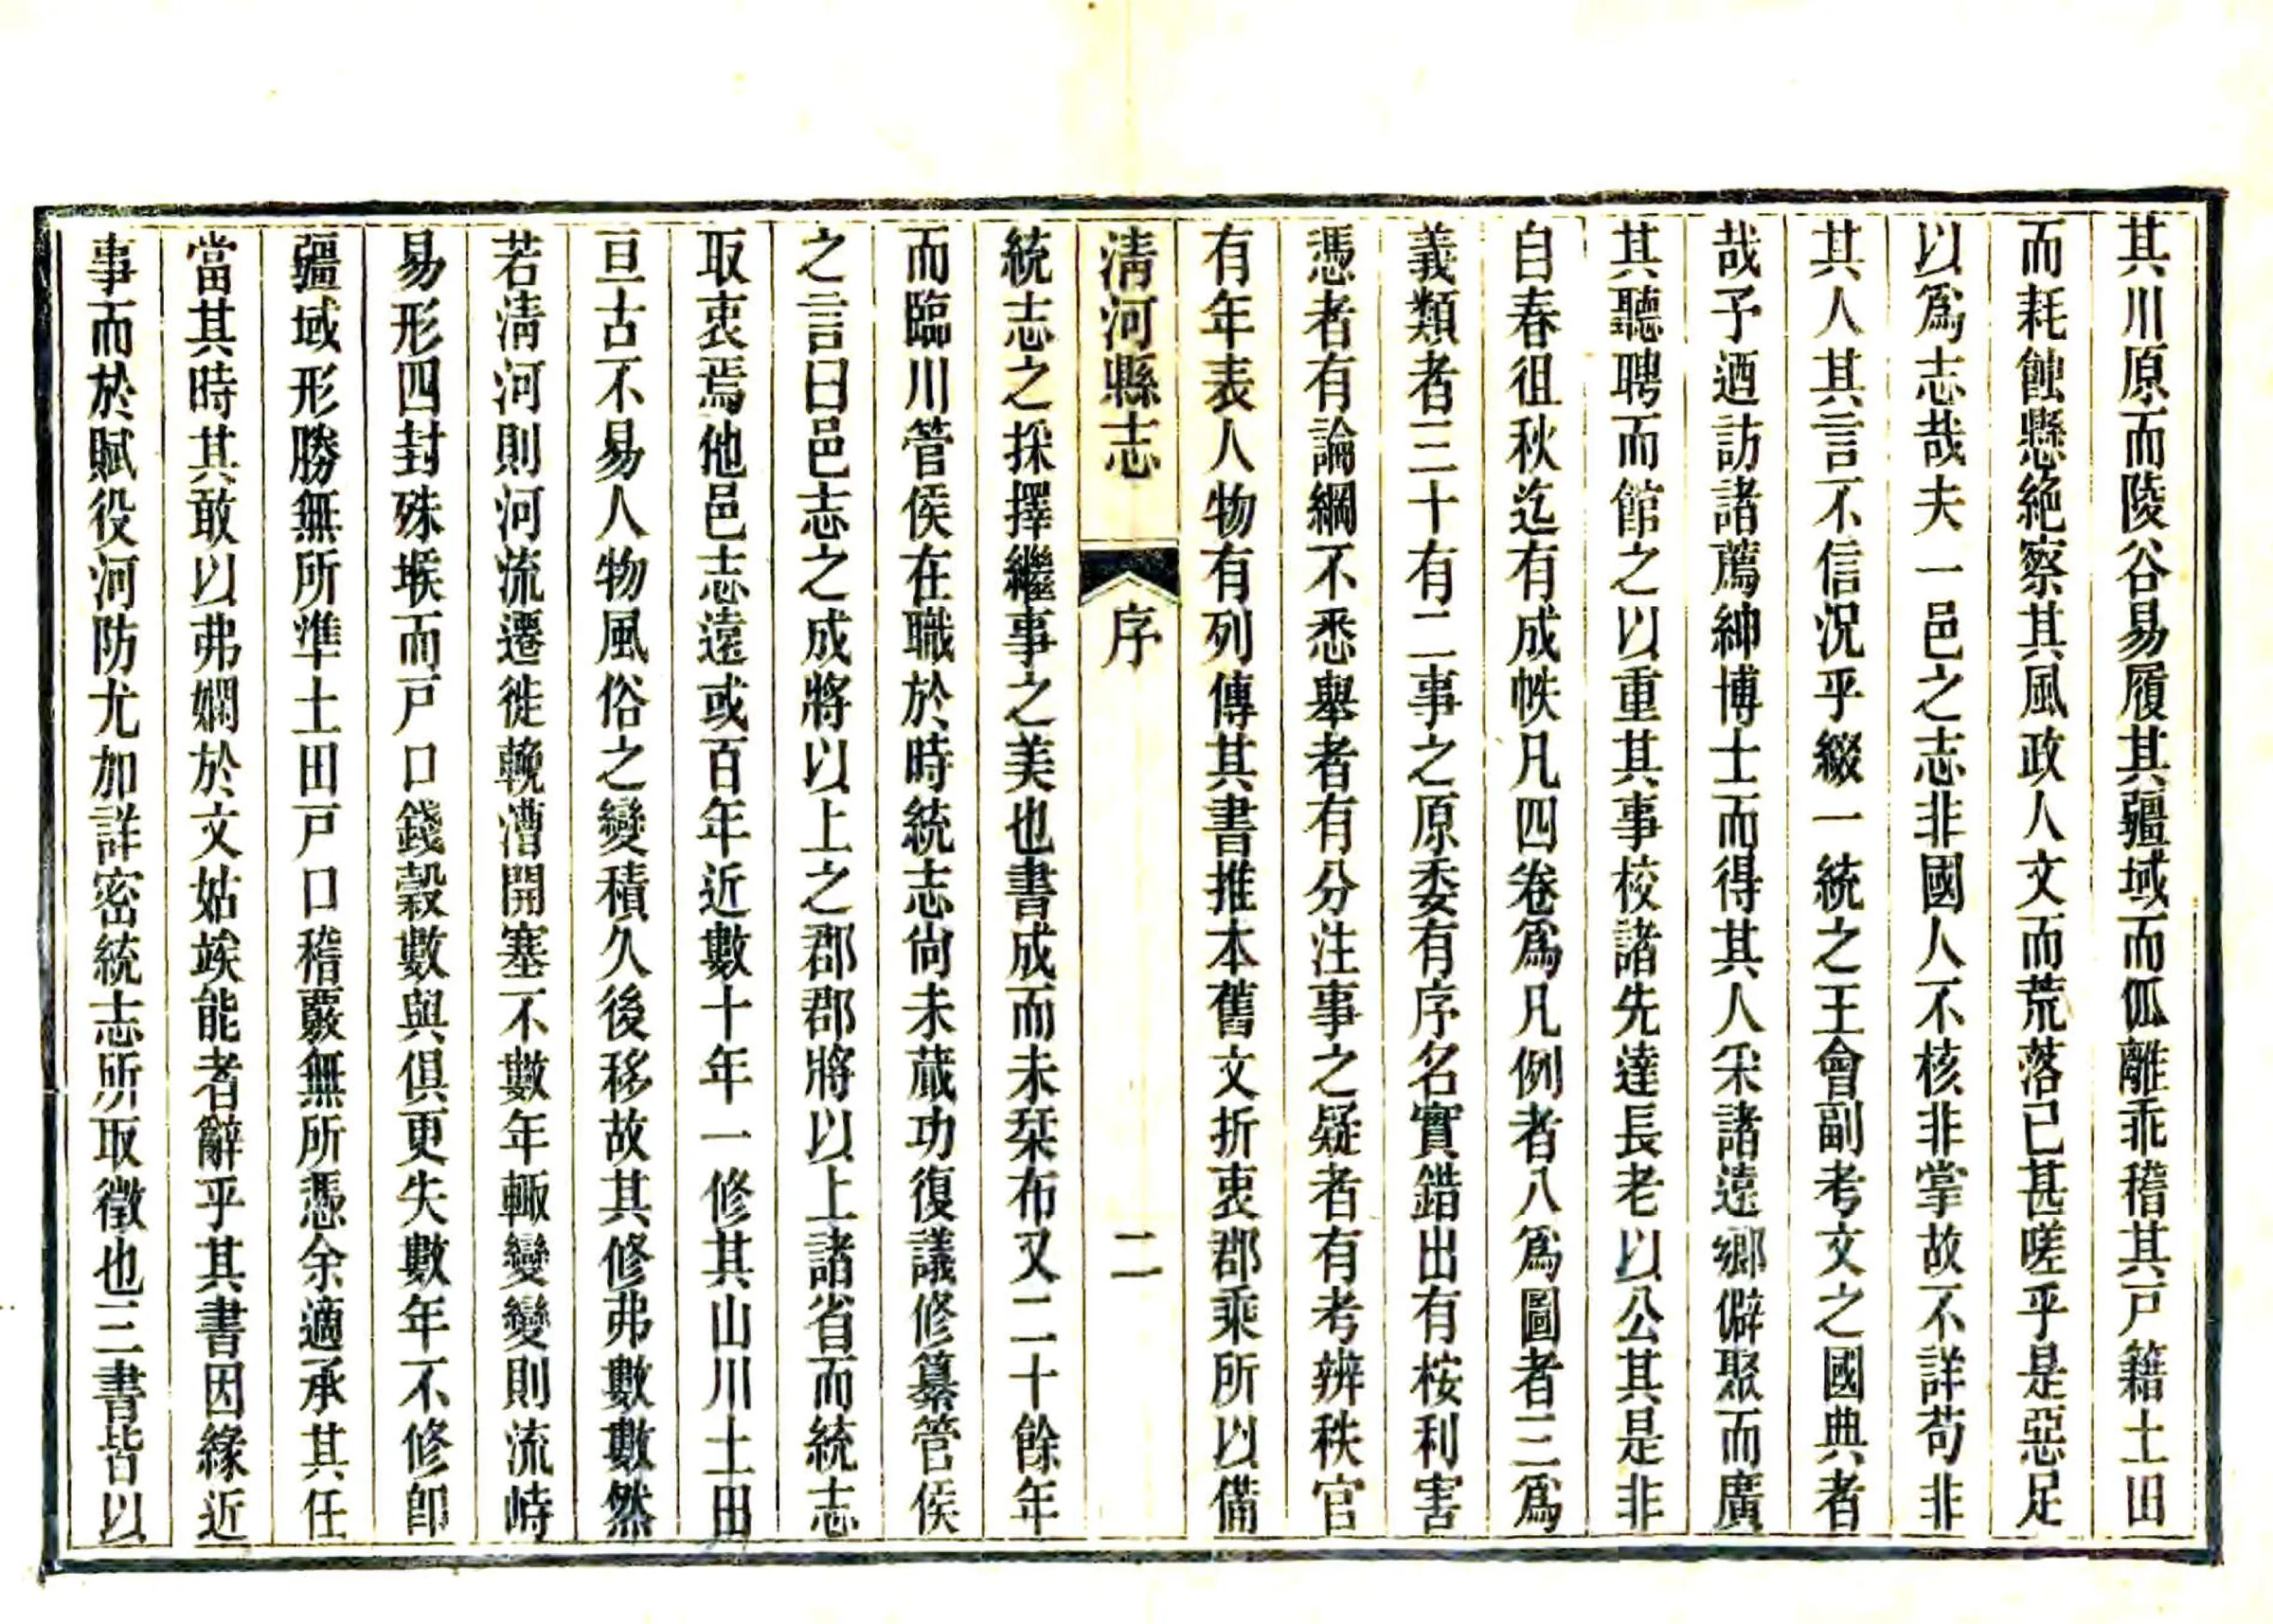 其川原而陵谷易履其疆域而㼌離乖稽其戸籍土田
而耗蝕懸絶察其風政人文而荒落已甚嗟乎是惡足
以爲志哉夫一邑之志非國人不核非掌故不詳苟非
其人其言不信況乎綴一統之王會副考文之國典者
哉予迺訪諸薦紳博士而得其人采諸遠鄉僻聚而廣
其聽聘而館之以重其事校諸先達長老以公其是非
自春徂秋迄有成帙凡四卷爲凡例者八爲圖者三爲
義類者三十有二事之原委有序名實錯出有桉利害
憑者有論綱不悉舉者有分注事之疑者有考辨秩官
有年表人物有列傳其書推本舊文折衷郡乘所以備
清河縣志 序 二
統志之採擇繼事之美也書成而未栞布又二十餘年
而臨川管侯在職於時統志尚未蕆功復議修纂管侯
之言曰邑志之成將以上之郡郡將以上諸省而統志
取衷焉他邑志遠或百年近數十年一修其山川土田
亘古不易人物風俗之變積久後移故其修弗數數然
若清河則河流遷徙輓漕開塞不數年輒變變則流峙
易形四封殊堠而戸口錢穀數與俱更失數年不修卽
疆域形勝無所準土田戸口稽覈無所憑余適承其任
當其時其敢以弗嫺於文姑竢能者辭乎其書因緣近
事而於賦役河防尤加詳密統志所取徵也三書皆以